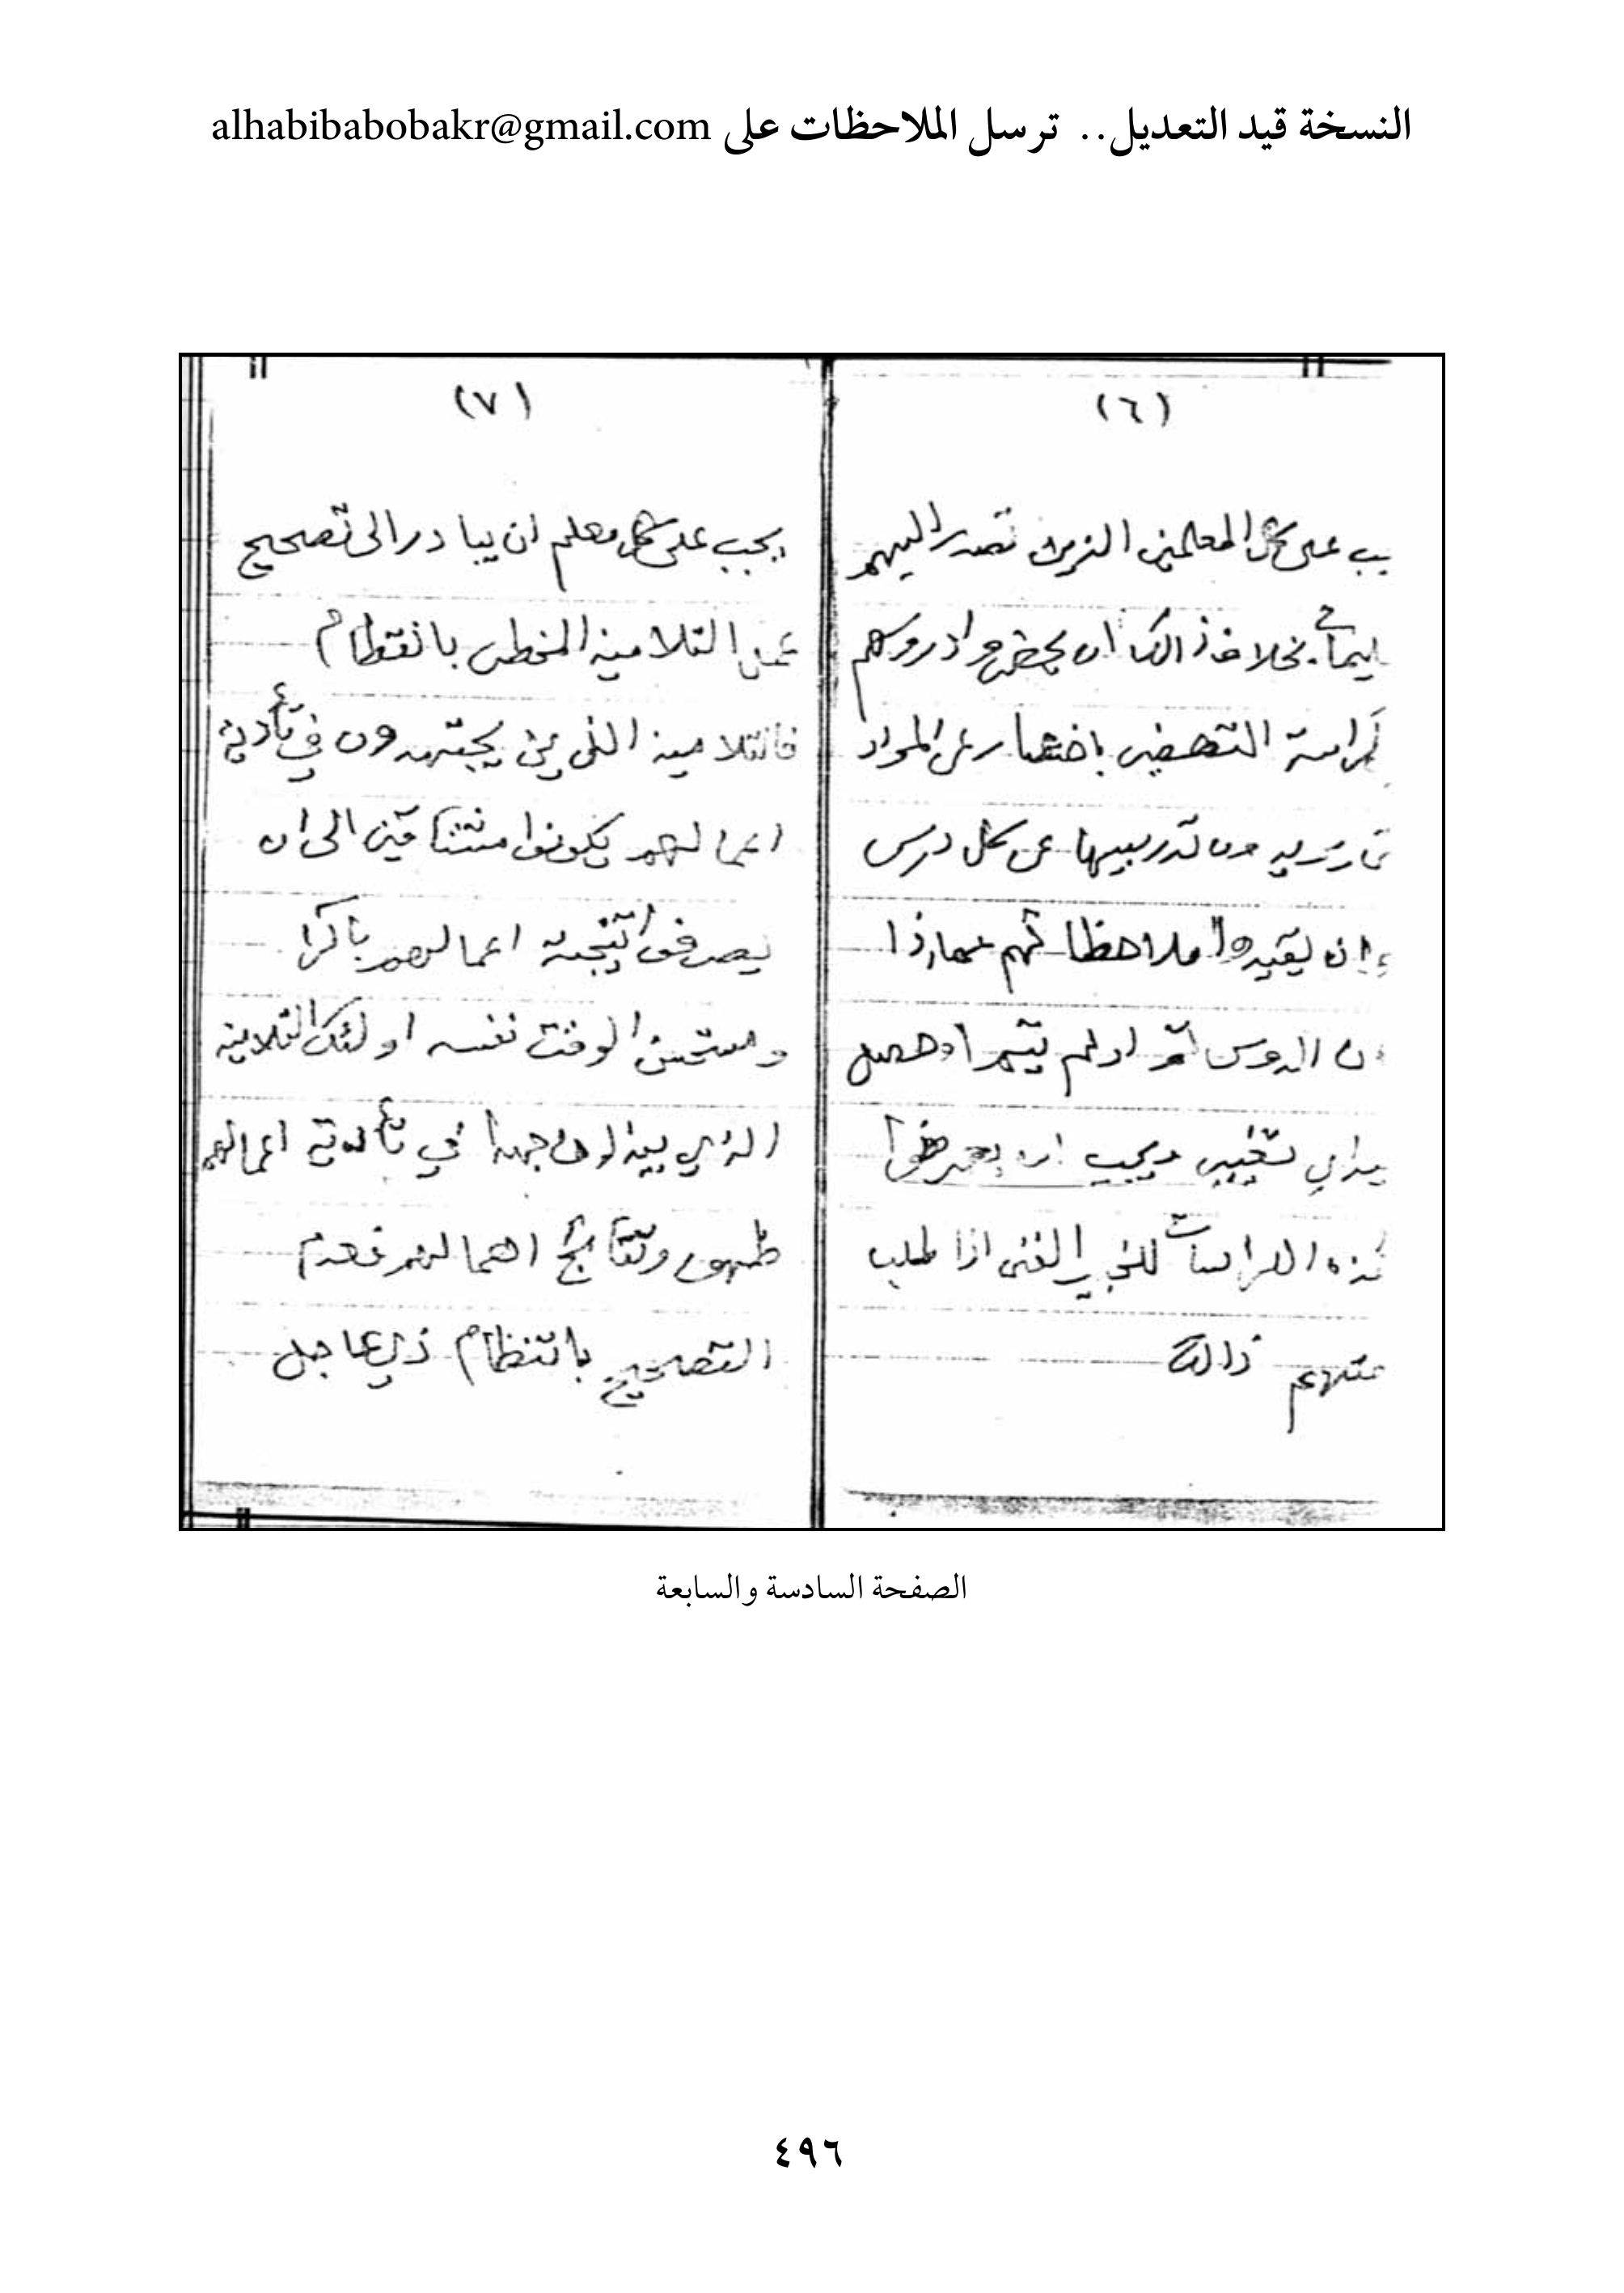 النسخة قيد التعديل.. ترسل الملاحظات على alhabibabobakr@gmail.com
(٦)
يب على كل المعلمين الذين تصدر اليهم
بخلاف ذالك ان يحضروا دروسهم
كراسة التحضير باختصار عن المواد
تدريسها عن كل درس
وان يقيدوا ملاحظاتهم عما اذا
ن الدروس اولم يتم او حصل
اي تغيير ويجب ان يعرضوا
هذه الكراسات للخبير الفني اذا طلب
منهم ذالك
(٧)
يجب على كل معلم ان يبادر الى تصحيح
عمل التلاميذ الخطي بانتظام
فالتلاميذ الذين يجتهدون في تأدية
اعمالهم يكونوا الى ان
نتيجة اعمالهم باكرا
الوقت نفسه اولئك التلاميذ
الذي يبذلون جهدا في تأدية اعمالهم
ونتائج اهمالهم فعدم
التصحيح بانتظام
الصفحة السادسة والسابعة
٤٩٦